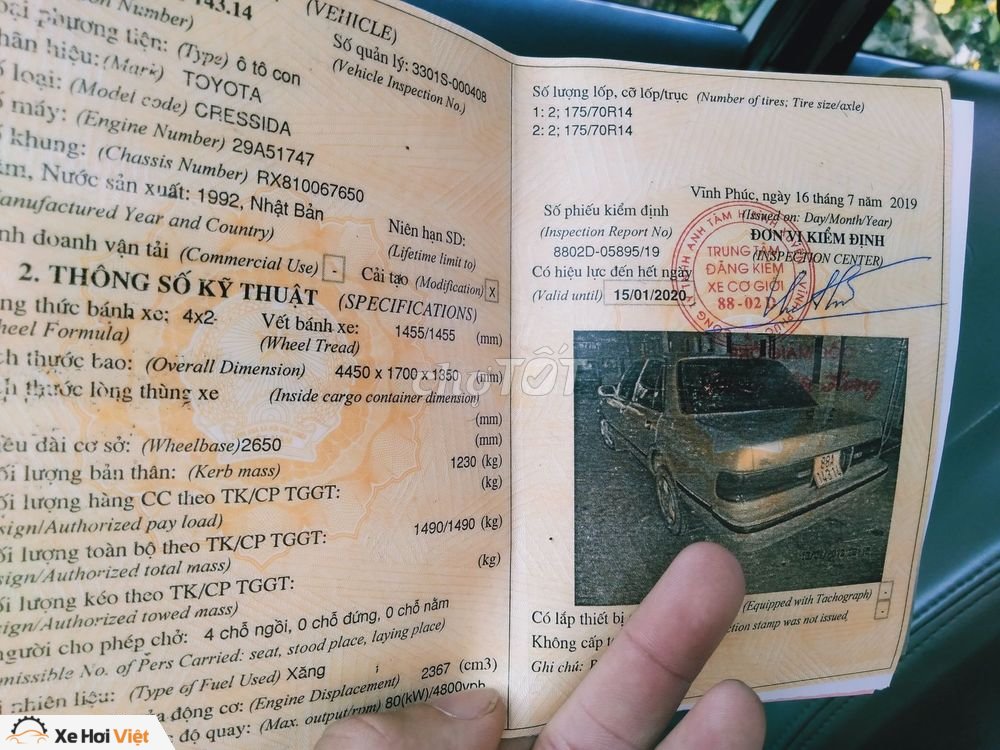 143.14
(VEHICLE)
Số quản lý: 3301S-000408
(Vehicle Inspection No.)
phương tiện: (Type) ô tô con
hiệu: (Mark) TOYOTA
loại: (Model code) CRESSIDA
máy: (Engine Number) 29A51747
khung: (Chassis Number) RX810067650
Nước sản xuất: 1992, Nhật Bản
Year and Country)
doanh vận tải (Commercial Use) -
Niên hạn SD:
(Lifetime limit to)
Cải tạo (Modification) X
2. THÔNG SỐ KỸ THUẬT (SPECIFICATIONS)
thức bánh xe: 4x2
Formula)
Vết bánh xe: 1455/1455 (mm)
(Wheel Tread)
thước bao: (Overall Dimension) 4450 x 1700 x 1350 (mm)
thước lòng thùng xe (Inside cargo container dimension)
(mm)
dài cơ sở: (Wheelbase) 2650 (mm)
lượng bản thân: (Kerb mass) 1230 (kg)
lượng hàng CC theo TK/CP TGGT: (kg)
pay load)
lượng toàn bộ theo TK/CP TGGT: 1490/1490 (kg)
total mass)
lượng kéo theo TK/CP TGGT: (kg)
towed mass)
cho phép chở: 4 chỗ ngồi, 0 chỗ đứng, 0 chỗ nằm
No. of Pers Carried: seat, stood place, laying place)
nhiên liệu: (Type of Fuel Used) Xăng
động cơ: (Engine Displacement) 2367 (cm3)
độ quay: (Max. output/rpm) 80(kW)/4800vph
Số lượng lốp, cỡ lốp/trục (Number of tires; Tire size/axle)
1: 2; 175/70R14
2: 2; 175/70R14
Vĩnh Phúc, ngày 16 tháng 7 năm 2019
(Issued on: Day/Month/Year)
Số phiếu kiểm định
(Inspection Report No)
8802D-05895/19
ĐƠN VỊ KIỂM ĐỊNH
(INSPECTION CENTER)
Có hiệu lực đến hết ngày
(Valid until) 15/01/2020
TRUNG TÂM
ĐĂNG KIỂM
XE CƠ GIỚI
88-02D
chợTỐT
88A
143.14
Có lắp thiết bị
(Equipped with Tachograph) -
Không cấp
stamp was not issued -
Ghi chú:
Xe Hơi Việt